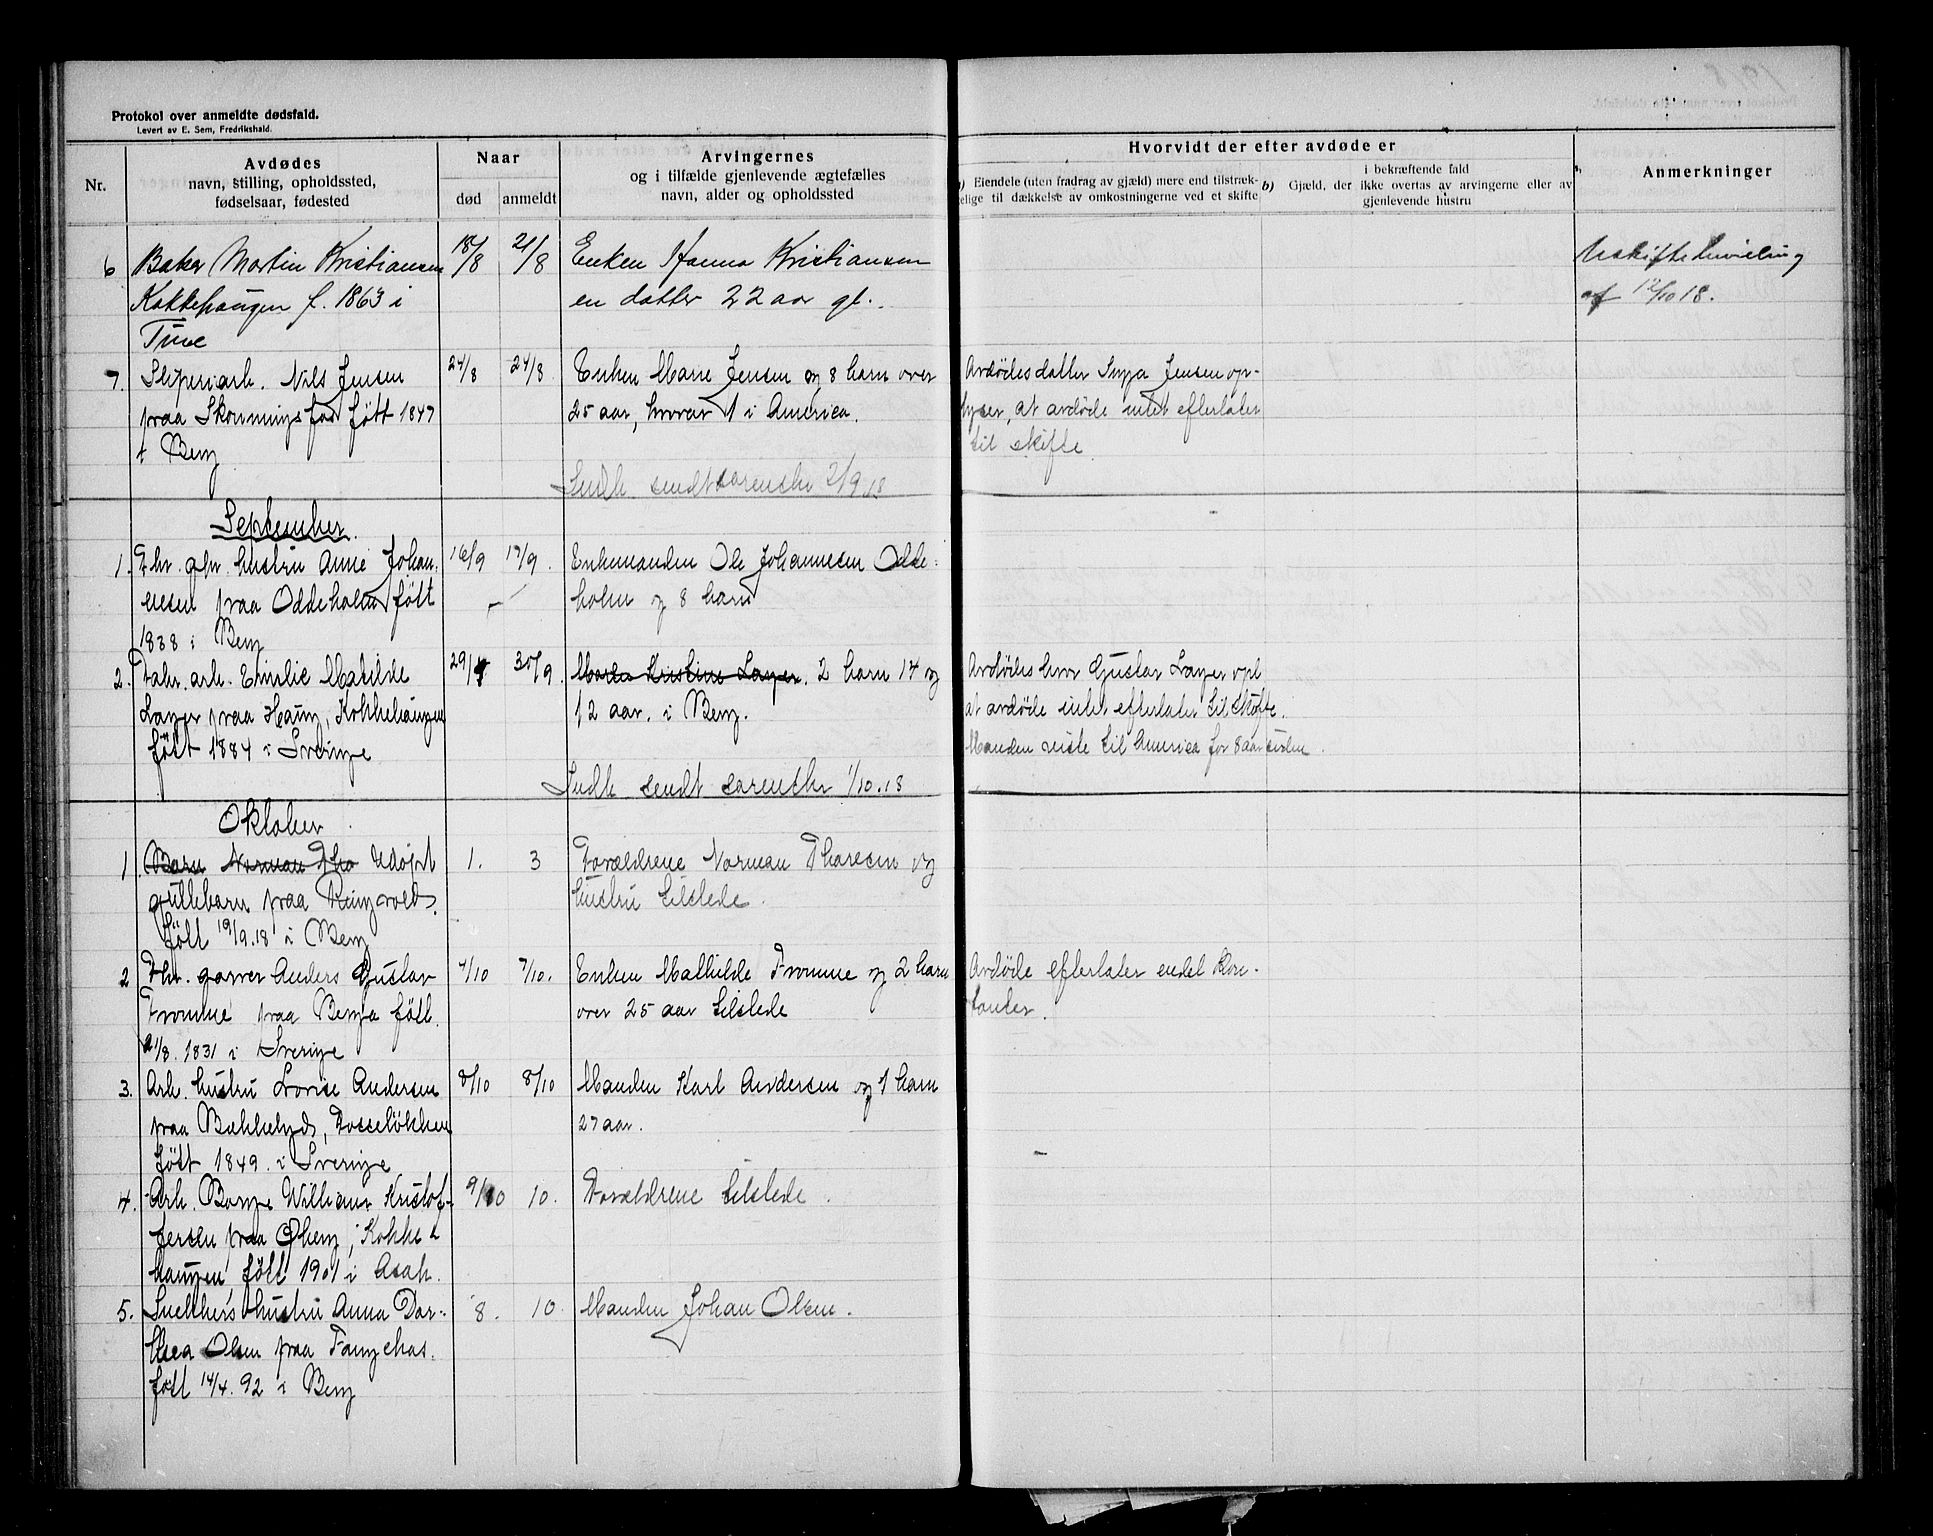 Protokol over anmeldte dødsfald.
Levert av E. Sem, Fredrikshald.
Nr.
Avdødes
navn, stilling, opholdssted,
fødselsaar, fødested
Naar
død
anmeldt
Arvingernes
og i tilfælde gjenlevende ægtefælles
navn, alder og opholdssted
Hvorvidt der efter avdøde er
Eiendele (uten fradrag av gjæld) mere end tilstræk-
elige til dækkelse av omkostningerne ved et skifte
i bekræftende fald
b) Gjæld, der ikke overtas av arvingerne eller av
gjenlevende hustru
Anmerkninger
6 Baker Martin Kristiansen 18/8 21/8 Enken Hanna Kristiansen
Kokkehaugen f. 1863 i en datter 22 aar gl.
Tune
Uskiftebevilling
af 12/10 18.
7. Sliperiarb. Nils Jensen 24/8 24/8 Enken Marie Jensen og 8 barn over
paa Skonningsfos født 1847 25 aar, hvorav 1 i America.
i Berg
Avdødes datter Inga Jensen op-
lyser, at avdøde intet efterlater
til skifte
Indb. sendt sorenskr 2/9 18
September.
1. Fhv. gbr. hustru Anne Johan- 16/9 17/9. Enkemanden Ole Johannesen Odde-
nesen paa Oddeholm født holm og 8 barn
1838 i Berg
2. Fabr. arb. Emilie Matilde 29/9 30/9. Moder Kristine Layer. 2 barn 14 og
Layer paa Haug, Kokkehaugen 12 aar. i Berg.
født 1884 i Sverige
Avdødes bror Gustav Layer opl
at avdøde intet efterlater til skifte.
Manden reiste til America for 8 aar siden.
Indb sendt sorenskr 1/10.18
Oktober
1. Barn Norman Tho Udøpt 1. 3 Forældrene Norman Thoresen og
guttebarn paa Ringvold. hustru tilstede.
født 19/9.18 i Berg
2 Fhv. garver Anders Gustav 4/10 7/10. Enken Mathilde Fromme og 2 barn
Fromme paa Berga født over 25 aar tilstede
21/8. 1831 i Sverige
Avdøde efterlater endel kon-
tanter.
3. Arb. hustru Lovise Andersen 8/10 8/10 Manden Karl Andersen og 1 barn
paa Bakkelyds, 27 aar.
født 1849. i Sverige
4. Arb. Borge William Kristof- 9/10 10. Forældrene tilstede.
fersen paa Oberg, Kokke-
haugen, født 1901 i Asak.
5. Snekkers hustru Anna Dor- 8. 10. Manden Johan Olsen.
thea Olsen paa
født 14/4. 92 i Berg